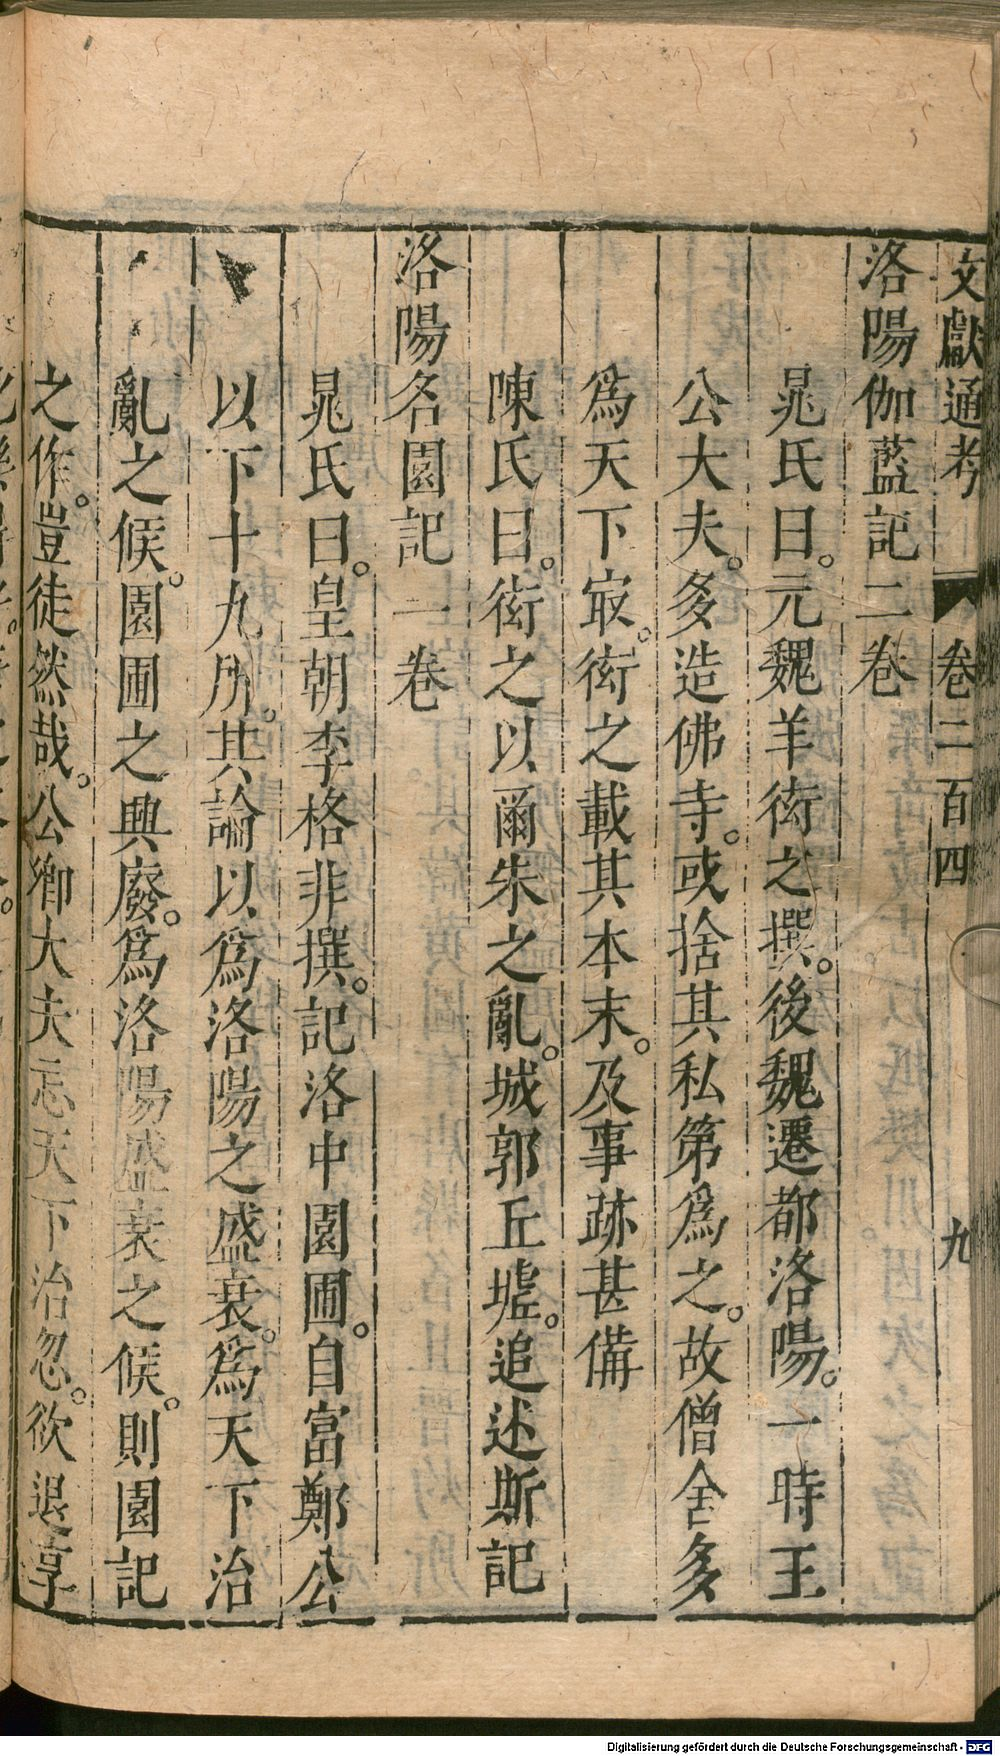 文獻通考 卷二百四 九
洛陽伽藍記二卷
晁氏曰。元魏羊衒之撰。後魏遷都洛陽。一時王
公大夫。多造佛寺。或捨其私第爲之。故僧舍多
爲天下㝡。衒之載其本末。及事跡甚備
陳氏曰。衒之以爾朱之亂。城郭丘墟。追述斯記
洛陽名園記一卷
晁氏曰。皇朝李格非撰。記洛中園圃。自富鄭公
以下十九所。其論以爲洛陽之盛衰。爲天下治
亂之候。園圃之興廢。爲洛陽盛衰之候。則園記
之作。豈徒然哉。公卿大夫忘天下治忽。欲退享
Digitalisierung gefördert durch die Deutsche Forschungsgemeinschaft - DFG